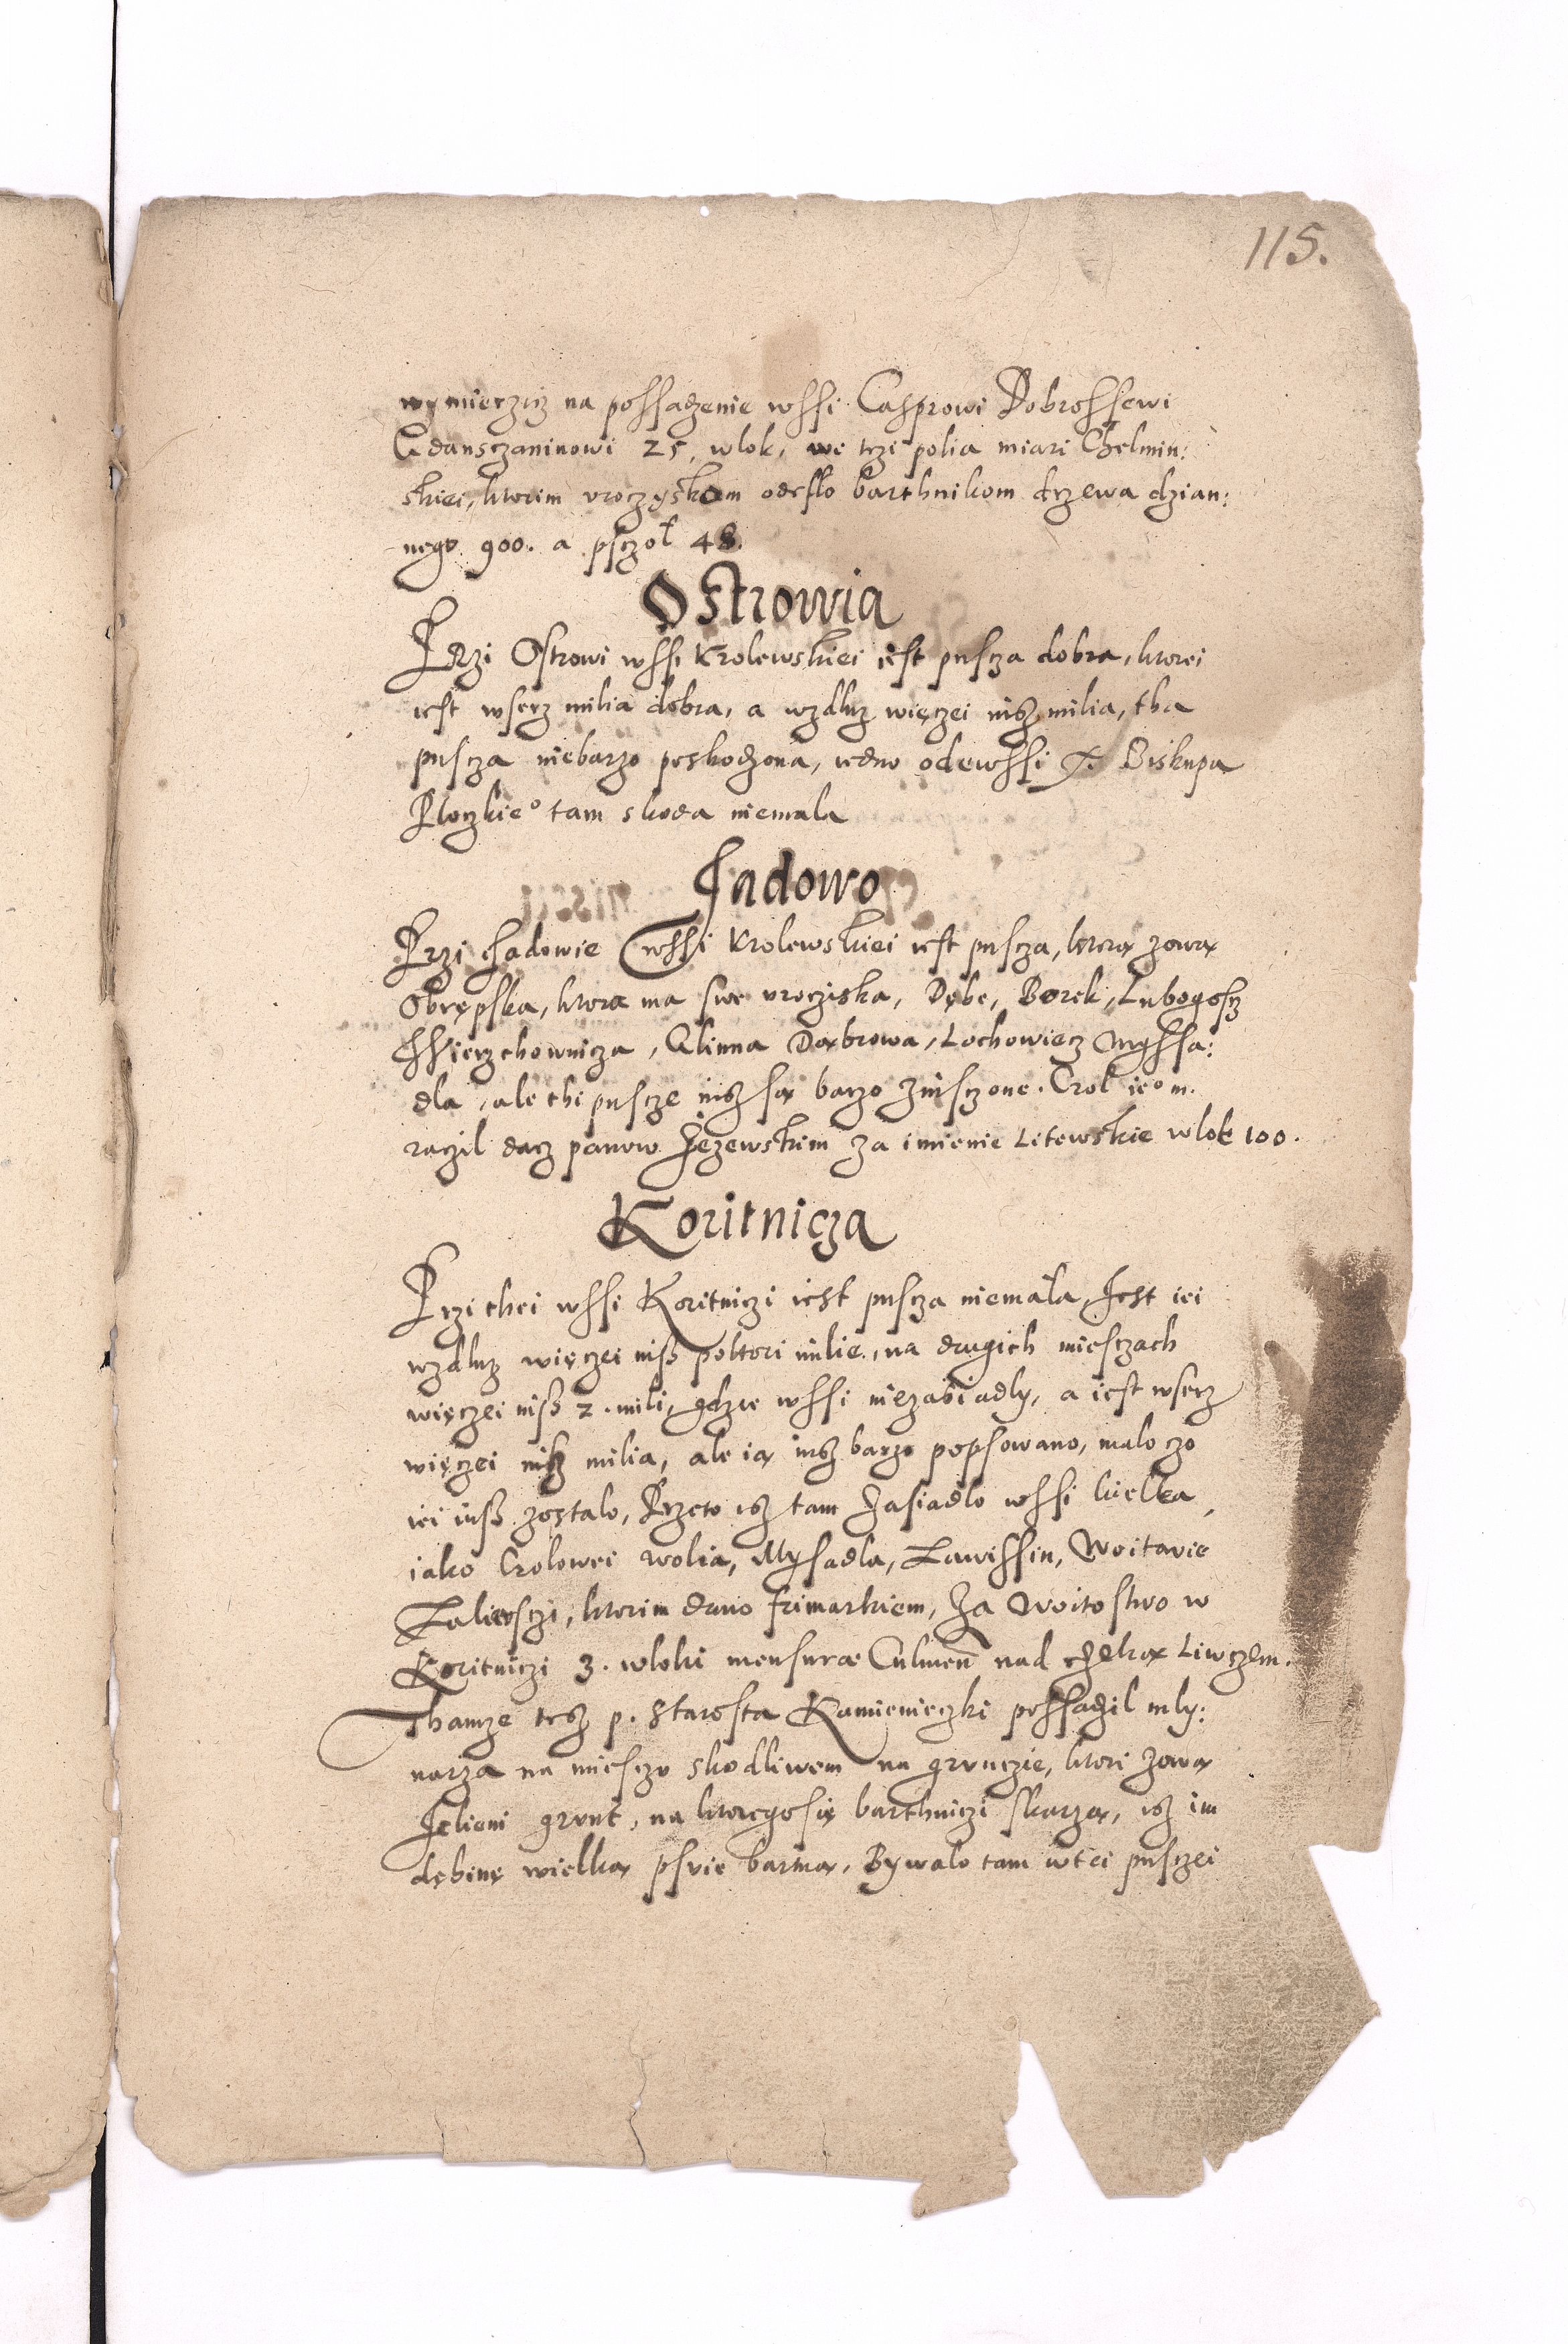 115.
wymierzicz na possadzenie wssi Casprowi Dobrossewi
Gdansczaninowi 25. wlok, we trzi polia miari Chelmin:
skiei, ktorim vroczyskom odesslo barthnikom drzewa dzian:
nego 900. a psczol 48.
Ostrowia
Przi Ostrowi wssi Krolewskiei iest puscza dobra, ktorei
iest wserz milia dobra, a wzdluz więczei nisz milia, tha
puscza niebarzo poskodzona, iedno odewssi X. Biskupa
Ploczkie° tam skoda niemala
Jadowo
Przi Jadowie wssi Krolewskiei iest puscza, ktorą zową
Obrępska, ktora ma swe vrocziska, Dębe, Borek, Lubogoscz
Wierzchownicza, Glinna Dąbrowa, Lochowiecz Myssa:
dla, ale thi puscze iusz są barzo zniszczone. Crol ie° m.
raczil dacz panow Jezewskim za imienie Litewskie wlok 100.
Koritnicza
Przi thei wssi Koritniczi iest puscza niemała, Jest iei
wzdluz więczei niss poltori milie, na drugich miesczach
więczei niss 2. mili, gdzie wssi niezasiadly, a iest wserz
więczei nisz milia, ale ią iusz barzo popsowano, malo czo
iei iuss zostalo, Przeto isz tam zasiadlo wssi kielka,
iako Crolowei wolia, Mysadla, Zawissin, Woitowie
Zaliwsczi, ktorim dano frimarkiem, za woitostwo w
Koritniczi 3. wloki mensuræ Culmen̄ nad rzeką Liwczem.
Thamze tesz p. Starosta Kamienieczki possadzil mly:
narza na miesczu skodliwem na grunczie, ktori zową
Jelieni grunt, na ktoregosię barthniczi skarzą, isz im
dębinę wielką psuie bartną, Bywalo tam wtei pusczei